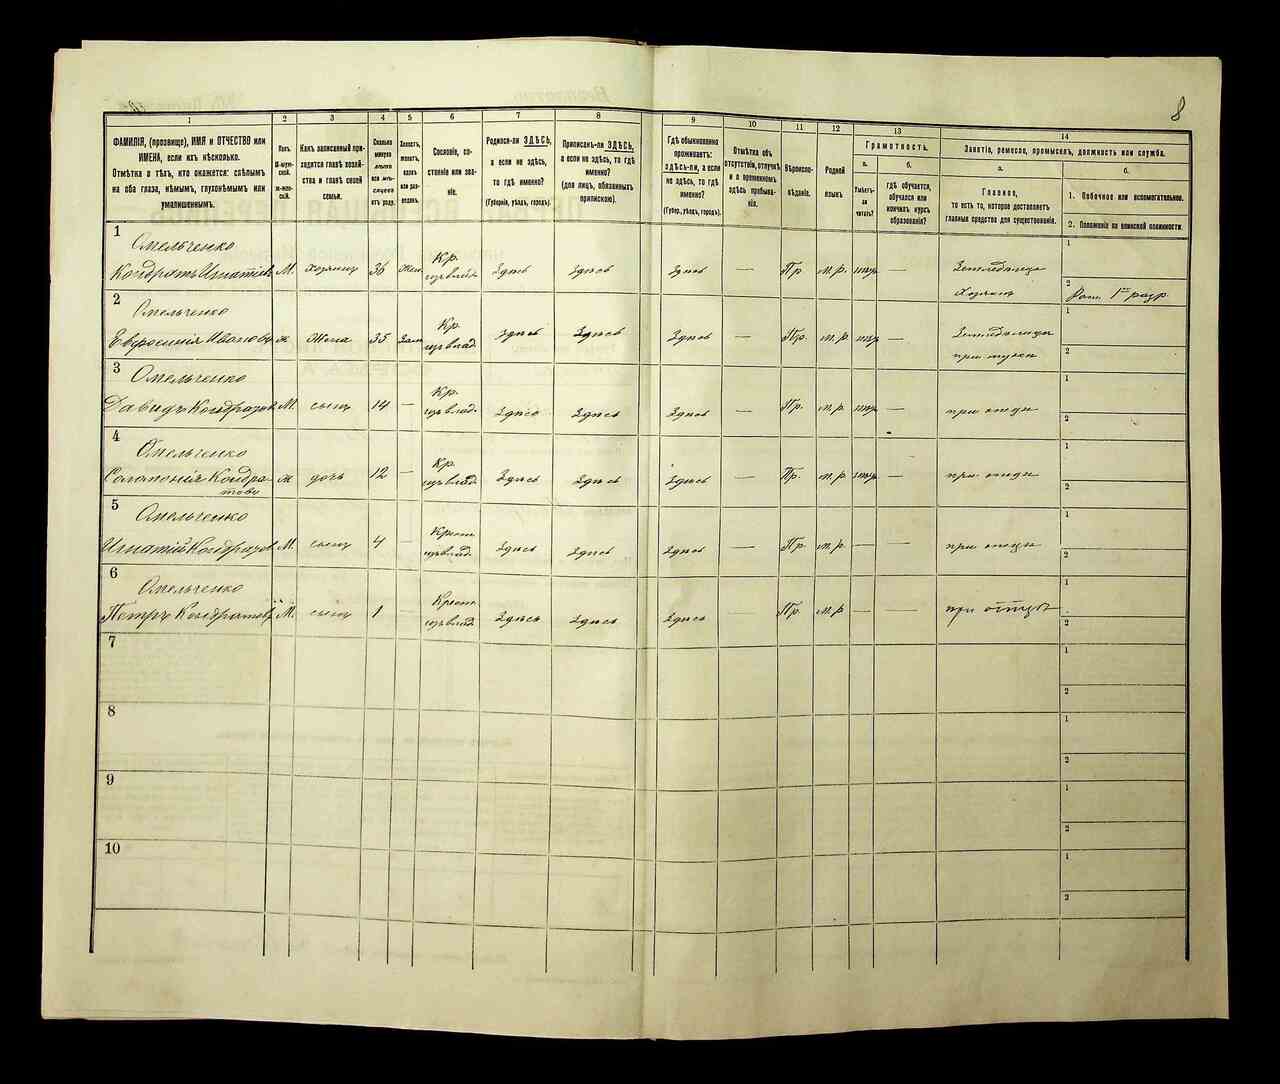 8
1 2 3 4 5 6 7 8 9 10 11 12 13 14
ФАМИЛІЯ, (прозвище), ИМЯ и ОТЧЕСТВО или
ИМЕНА, если ихъ нѣсколько.
Отмѣтка о тѣхъ, кто окажется: слѣпымъ
на оба глаза, нѣмымъ, глухонѣмымъ или
умалишеннымъ.
Полъ.
М-муж-
ской.
Ж-жен-
скій.
Какъ записанный при-
ходится главѣ хозяй-
ства и главѣ своей
семьи.
Сколько
минуло
лѣтъ
или мѣ-
сяцевъ
отъ роду.
Холостъ,
женатъ,
вдовъ
или раз-
веденъ.
Сословіе, со-
стояніе или зва-
ніе.
Родился-ли ЗДѢСЬ,
а если не здѣсь,
то гдѣ именно?
(Губернія, уѣздъ, городъ).
Приписанъ-ли ЗДѢСЬ,
а если не здѣсь, то гдѣ
именно?
(для лицъ, обязанныхъ
припискою).
Гдѣ обыкновенно
проживаетъ:
здѣсь-ли, а если
не здѣсь, то гдѣ
именно?
(Губер., уѣздъ, городъ).
Отмѣтка объ
отсутствіи, отлучкѣ
и о временномъ
здѣсь пребыва-
ніи.
Вѣроиспо-
вѣданіе.
Родной
языкъ
Грамотность.
а.
Умѣетъ-
ли
читать?
б.
гдѣ обучается,
обучался или
кончилъ курсъ
образованія?
Занятіе, ремесло, промыселъ, должность или служба.
а.
Главное,
то есть то, которое доставляетъ
главныя средства для существованія.
б.
1. Побочное или вспомогательное.
2. Положеніе по воинской повинности.
1
Омельченко
Кондратъ Игнатіев М. хозяинъ 36 Жен. Кр. здѣсь здѣсь здѣсь — Пр м.р. — Земледѣлецъ
Хозяинъ
1
2 1го разр.
2
Омельченко
Евфросинія Иванов ж Жена 35 Зам Кр. здѣсь здѣсь здѣсь — Пр. м.р. —
при мужѣ
1
2
3
Омельченко
Давидъ Кондратов М. сынъ 14 — Кр. здѣсь здѣсь здѣсь — Пр. м.р. — при отцѣ
1
2
4
Омельченко
Кондра-
това ж дочь 12 — Кр. здѣсь здѣсь здѣсь — Пр. м.р. — при отцѣ
1
2
5
Омельченко
Игнатій Кондратов М. сынъ 4 — Крест. здѣсь здѣсь здѣсь — Пр. м.р. — — при отцѣ
1
2
6
Омельченко
Петръ Кондратов М. сынъ 1 — Крест. здѣсь здѣсь здѣсь — Пр. м.р. — — при отцѣ
1
2
7
1
2
8
1
2
9
1
2
10
1
2